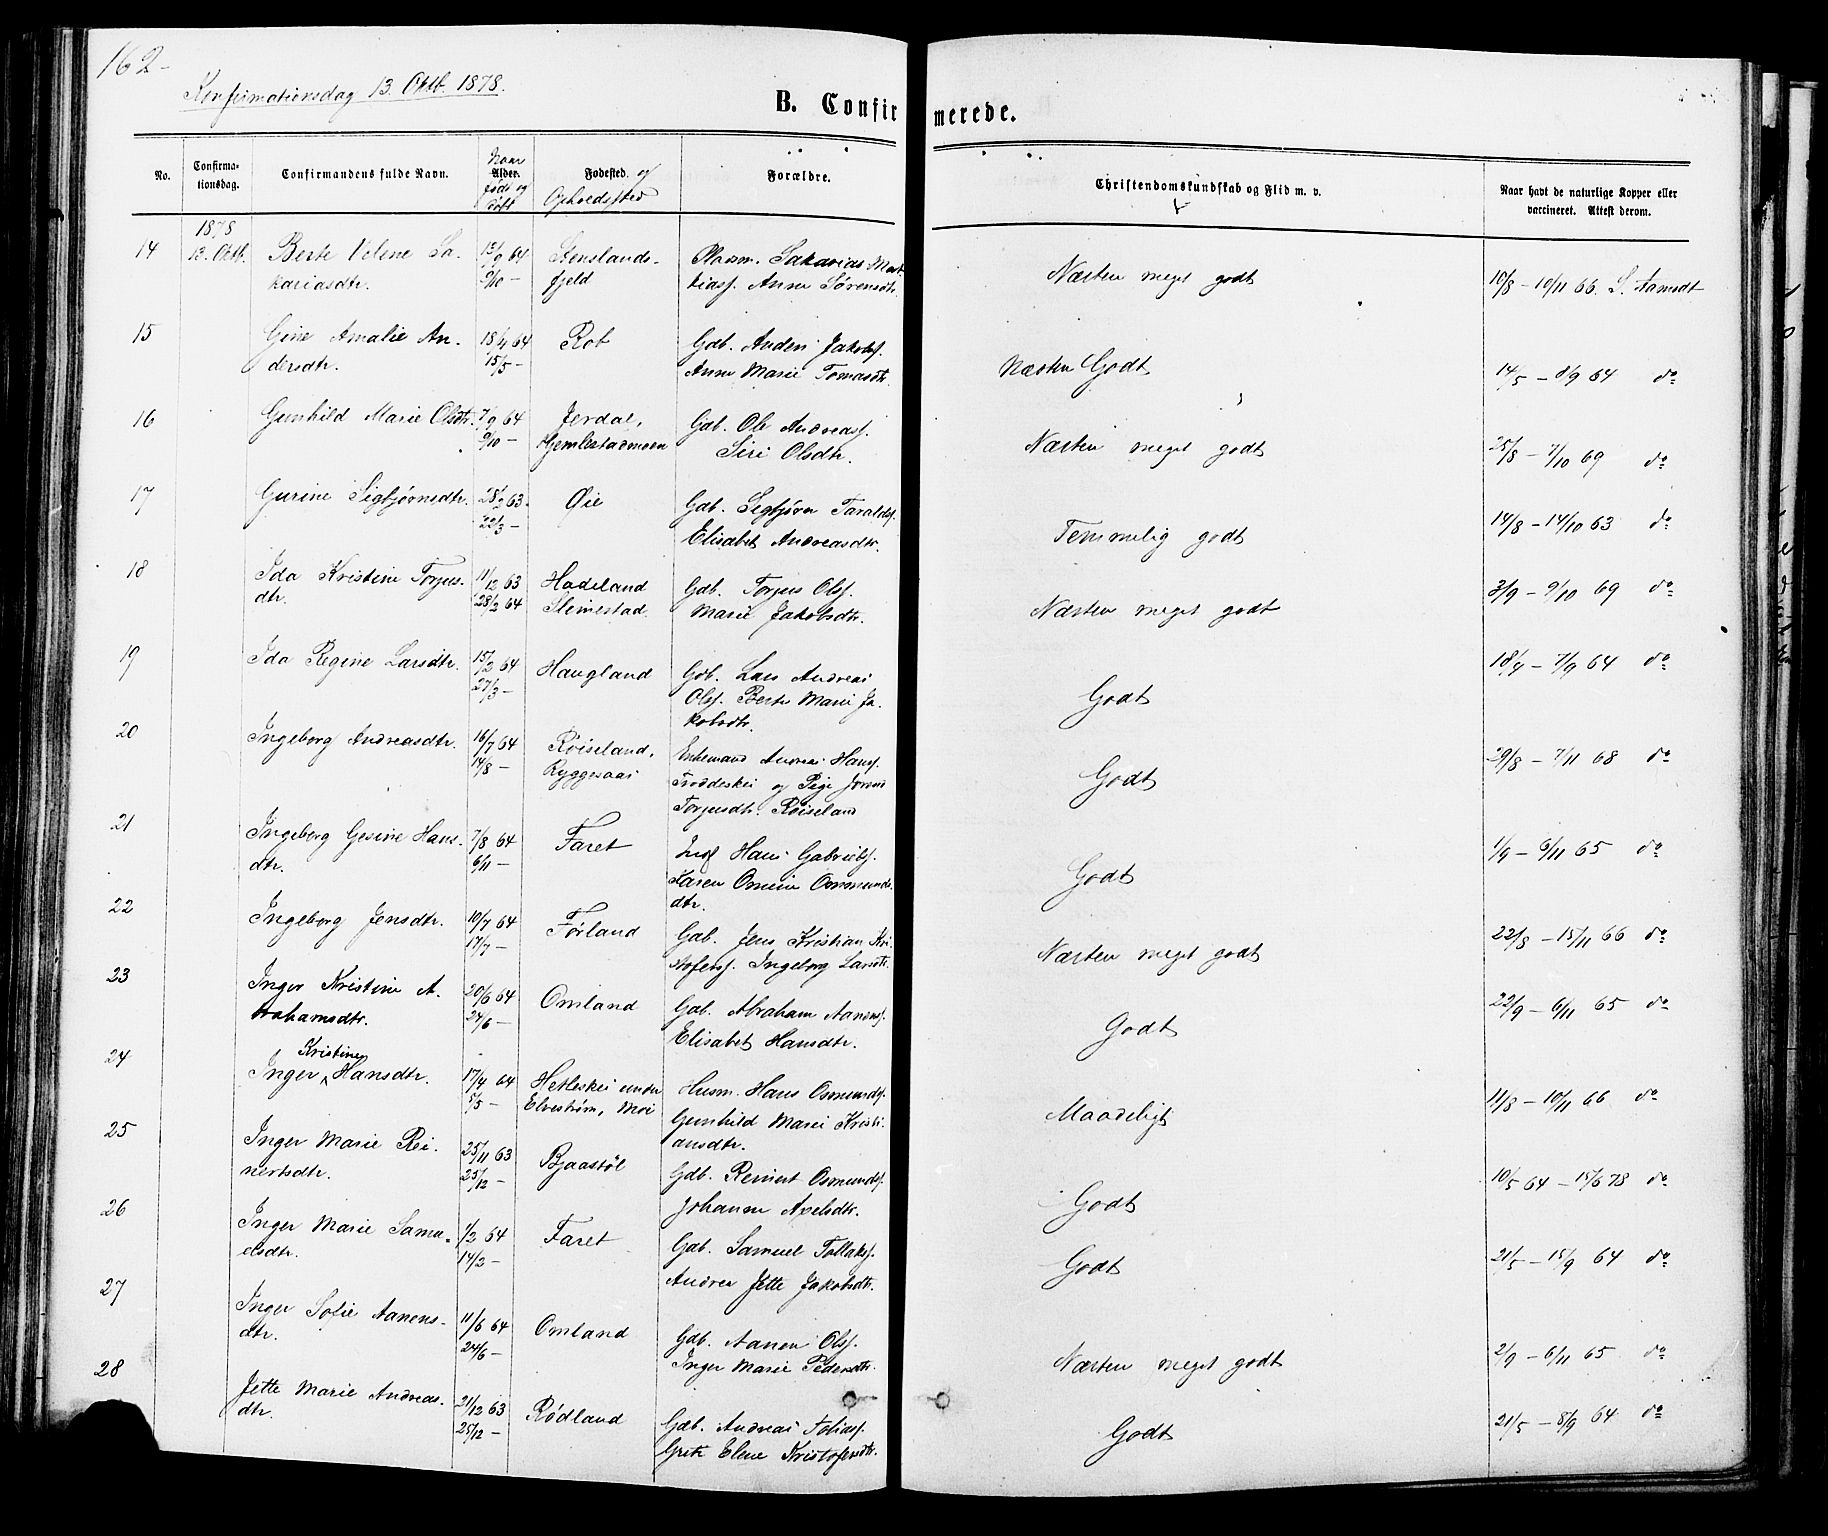 162-
Konfirmationsdag 13. Oktb. 1878.
B. Confirmerede.
No.
Confirma-
tionsdag.
Confirmandens fulde Navn.
Naar
Alder.
født og
døbt
Fødested. og
Opholdssted
Forældre.
Christendomskundskab og Flid m. v.
Naar havt de naturlige Kopper eller
vaccineret. Attest derom.
1878
14 13. Oktb. Berte Velene Sa- 15/9 64 Stenslands- Plasm. Sakarias Mat- Næsten meget godt 18/8 - 10/11 66. S. Aamodt
kariasdtr. 9/10 - fjeld tiass. Anne Sørensdtr.
15 Gine Amalie An- 18/4 64 Rot Gdb. Anders Jakobs. Næsten Godt 14/5 - 8/9 64 do
dersdtr. 15/5 - Anne Marie Tomasdtr.
16 Gunhild Marie Olsdtr. 7/9 64 Jerdal, Gdb. Ole Andreass. Næsten meget godt 25/8 - 7/10 69 do
9/10 - Hjemlestadmoen Siri Olsdtr.
17 Gurine Sigbjørnsdtr. 28/2 63 Øie Gdb. Sigbjørn Taralds. Temmelig godt 14/8 - 14/10 63 do
22/3 - Elisabet Andreasdtr.
18 Ida Kristine Torjus- 11/12 63 Hadeland Gdb. Torjus Ols. Næsten meget godt 3/9 - 9/10 69 do
dtr. 28/2 64 Slimestad Marie Jakobsdtr.
19 Ida Regine Larsdtr. 15/2 64 Haugland Gdb. Lars Andreas Godt 18/4 - 7/9 64 do
27/3 - Ols. Berte Marie Ja-
kobsdtr.
20 Ingeborg Andreasdtr. 16/7 64 Røiseland, Enkemand Andreas Hans. Godt 29/8 - 7/11 68 do
14/8 - Ryggesaas Froddeskei og Pige Jorand
Torjusdtr. Røiseland
21 Ingeborg Gesine Hans- 7/8 64 Faret Inds Hans Gabriels. Godt 1/9 - 6/11 65 do
dtr. 6/11 - Karen Omine Osmunds-
dtr.
22 Ingeborg Jensdtr. 10/7 64 Førland Gdb. Jens Kristian Kri- Næsten meget godt 22/8 - 15/11 66 do
17/7 - stofers. Ingeborg Larsdtr.
23 Inger Kristine A- 20/6 64 Omland Gdb. Abraham Aanens. Godt 22/9 - 6/11 65 do
brahamsdtr. 24/6 - Elisabet Hansdtr.
24 Kristine
Inger Hansdtr. 17/4 64 Hetleskei under Husm. Hans Osmunds. Maadeligt 11/8 - 10/11 66 do
5/5 - Elvestrøm, Moi Gunhild Marie Kristi-
ansdtr.
25 Inger Marie Rei- 25/11 63 Bjaastøl Gdb. Reinert Osmunds. Godt 10/5 64 - 15/6 78 do
nertsdtr. 25/12 - Johanne Axelsdtr.
26 Inger Marie Samu- 1/2 64 Faret Gdb. Samuel Tollaks. Godt 21/5 - 15/9 64 do
elsdtr. 14/2 - Andrea Jette Jakobsdtr.
27 Inger Sofie Aanens- 11/6 64 Omland Gdb. Aanen Ols. Næsten meget godt 2/9 - 6/11 65 do
dtr. 24/6 - Inger Marie Pedersdtr.
28 Jette Marie Andreas- 21/12 63 Rødland Gdb. Andreas Tobias. Godt 21/5 - 8/9 64 do
dtr. 25/12 - Grete Elene Kristofersdtr.